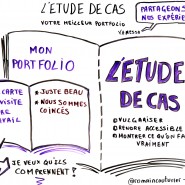 L'ETUDE DE CAS
VOTRE MEILLEUR PORTFOLIO
PARTAGEONS
NOS EXPÉRI
MON
PORTFOLIO
CARTE
VISITE
TRE
VAIL
* JUSTE BEAU
* NOUS SOMMES
COINCÉS
L'ETUDE
DE CAS
VULGARISER
RENDRE ACCESSIBLE
MONTRER CE QU'ON FAIT
VRAIMENT
JE VEUX QU'ILS
COMPRENNENT !